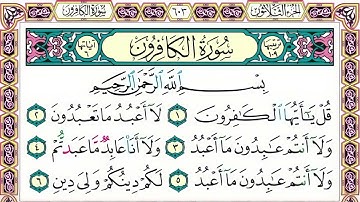 الجزء الثلاثون ٦٠٣ سورة الكافرون
ترتيبها ١٠٩ سورة الكافرون آياتها ٦
بِسْمِ ٱللَّهِ ٱلرَّحْمَٰنِ ٱلرَّحِيمِ
قُلْ يَٰٓأَيُّهَا ٱلْكَٰفِرُونَ ١ لَآ أَعْبُدُ مَا تَعْبُدُونَ ٢
وَلَآ أَنتُمْ عَٰبِدُونَ مَآ أَعْبُدُ ٣ وَلَآ أَنَا۠ عَابِدٌ مَّا عَبَدتُّمْ ٤
وَلَآ أَنتُمْ عَٰبِدُونَ مَآ أَعْبُدُ ٥ لَكُمْ دِينُكُمْ وَلِىَ دِينِ ٦